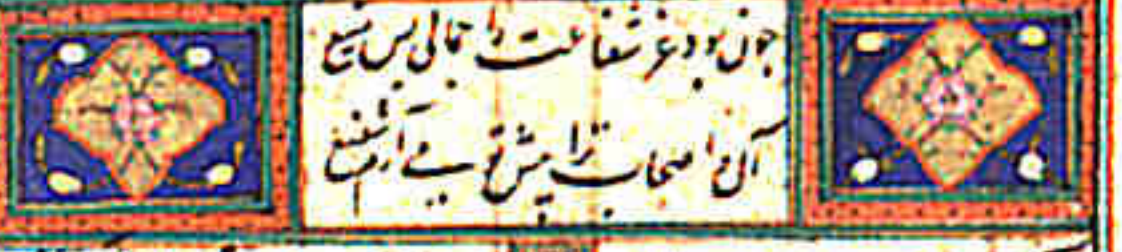 چون بود عز شفاعت را جمالی بس
آل و اصحاب ترا پیش تو می آرم شفیع